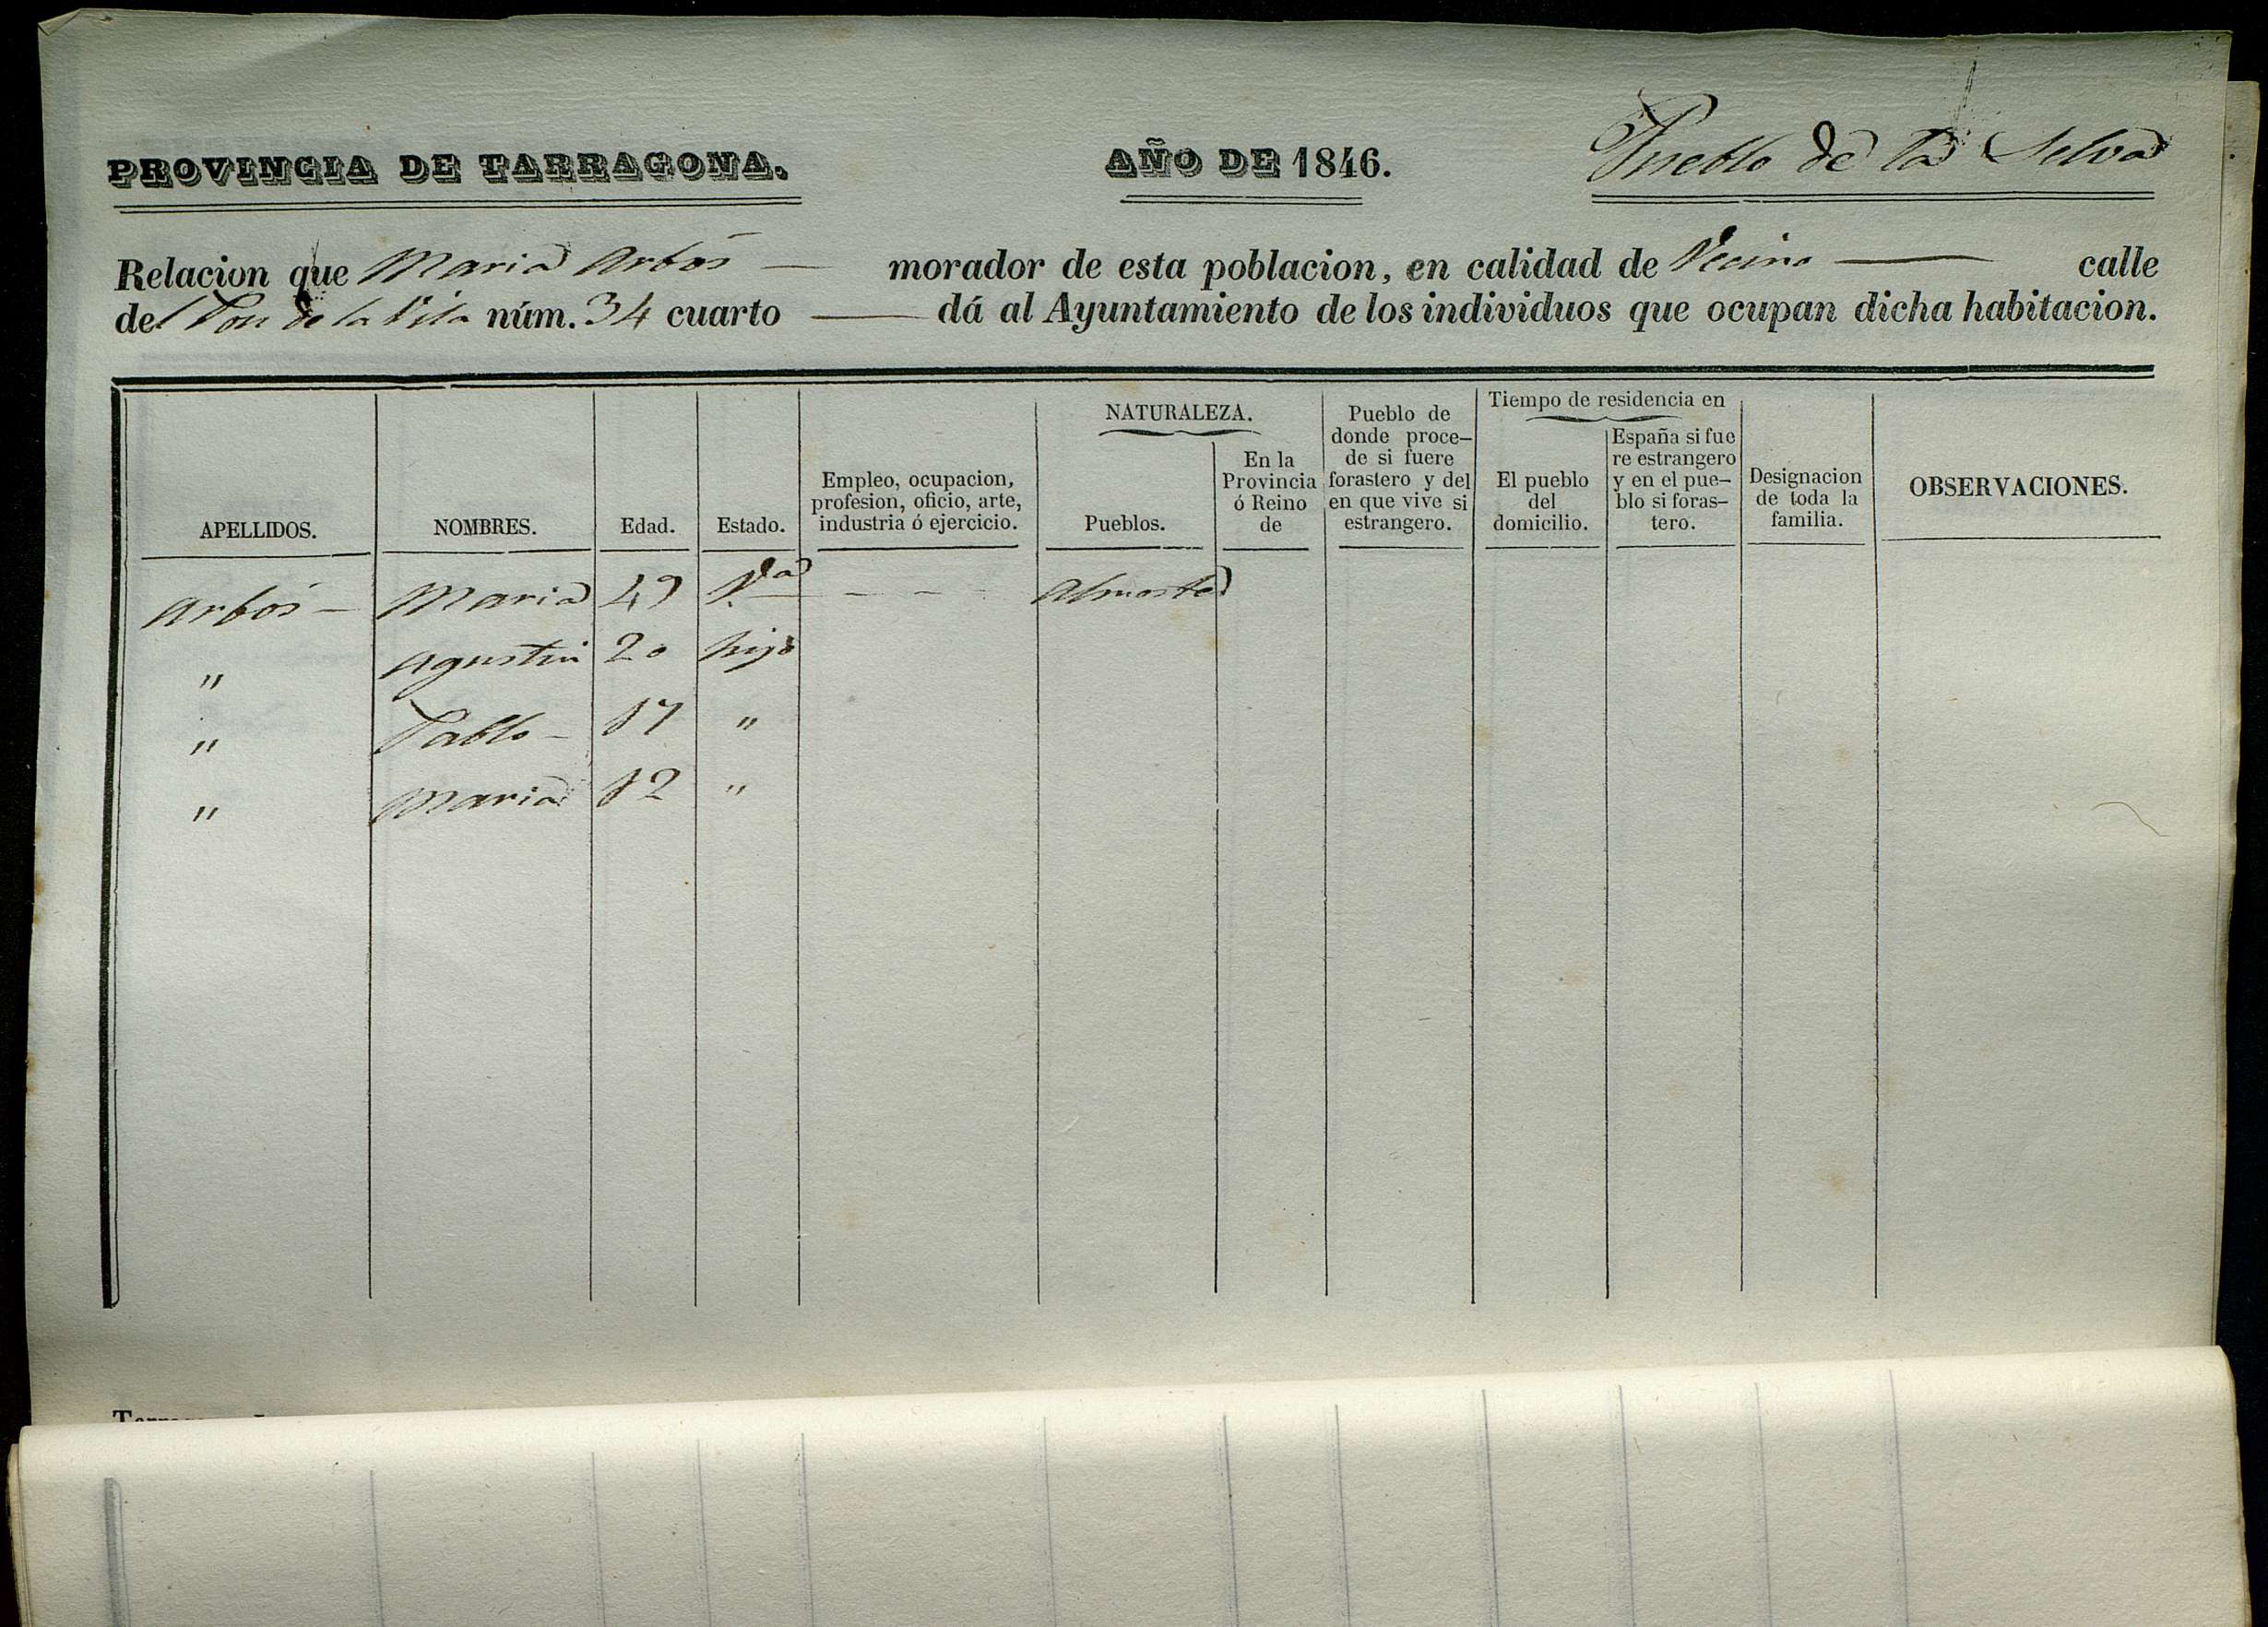 PROVINCIA DE TARRAGONA. AÑO DE 1846. Pueblo de la Selva
Relacion que Maria Arbós — morador de esta poblacion, en calidad de Vecino — calle
del Pou de la Vila núm. 34 cuarto — dá al Ayuntamiento de los individuos que ocupan dicha habitacion.
APELLIDOS.
NOMBRES.
Edad.
Estado.
Empleo, ocupacion,
profesion, oficio, arte,
industria ó ejercicio.
NATURALEZA.
Pueblos.
En la
Provincia
ó Reino
de
Pueblo de
donde proce-
de si fuere
forastero y del
en que vive si
estrangero.
Tiempo de residencia en
El pueblo
del
domicilio.
España si fue
re estrangero
y en el pue-
blo si foras-
tero.
Designacion
de toda la
familia.
OBSERVACIONES.
Arbós — Maria 49 V.da - - Almoster
" Agustin 20 hijo
" Pablo — 17 "
" Maria 12 "